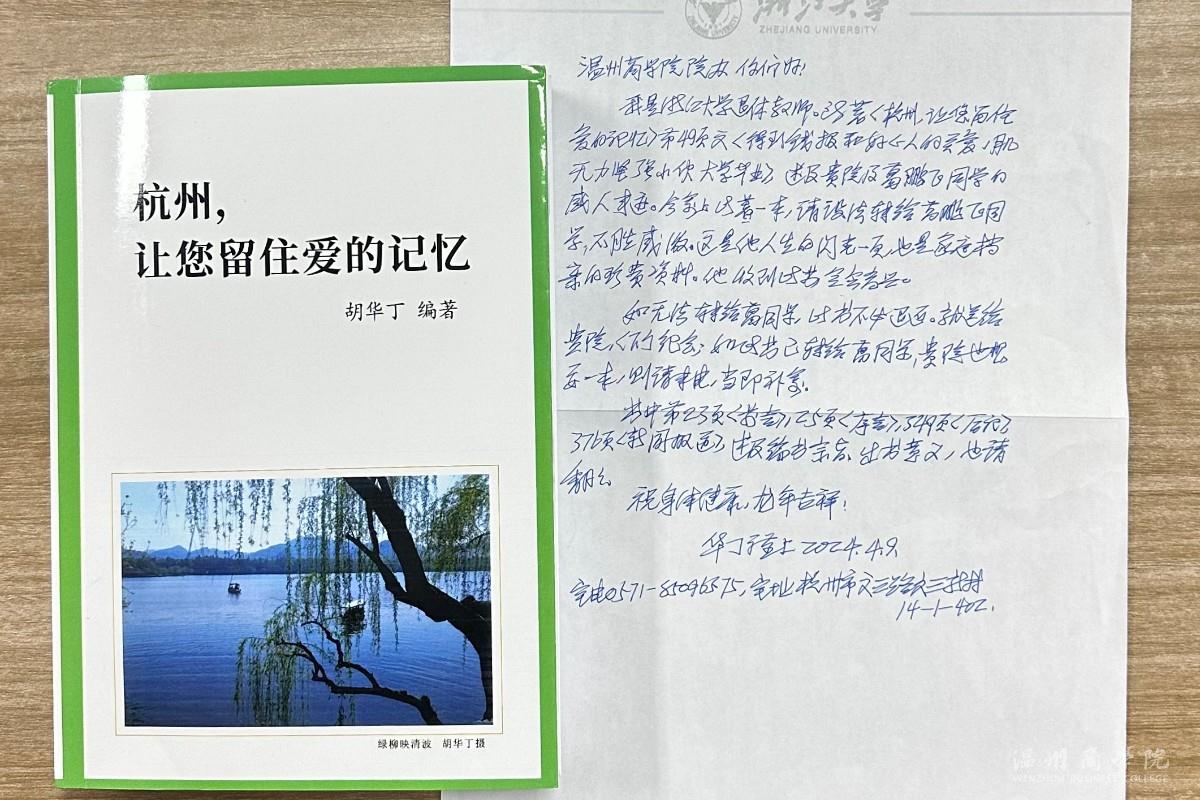 杭州，
让您留住爱的记忆
胡华丁 编著
绿柳映清波 胡华丁摄
浙江大学
ZHEJIANG UNIVERSITY
温州商学院院办 你们好！
我是浙江大学退休教师。此著《杭州，让您留住
爱的记忆》第49页文《得到钱报和好心人的关爱，肌
无力坚强小伙大学毕业》述及贵院及葛鹏飞同学的
感人事迹。今寄上此著一本，请设法转给葛鹏飞同
学，不胜感激。这是他人生的闪光一页，也是家庭档
案的珍贵资料。他收到此书定会高兴。
如无法转给葛同学，此书不必退还。就送给
贵院，作个纪念；如此书已转给葛同学，贵院也想
要一本，则请来电，当即补寄。
书中第23页《前言》，25页《序言》，349页《后记》
376页《新闻报道》述及编书宗旨、出书意义，也请
翻翻。
祝身体健康，龙年吉祥！
华丁手上 2024.4.9.
宅电0571-85096575，宅址杭州市文三路文三新村
14-1-402.
温州商学院
WENZHOU BUSINESS COLLEGE